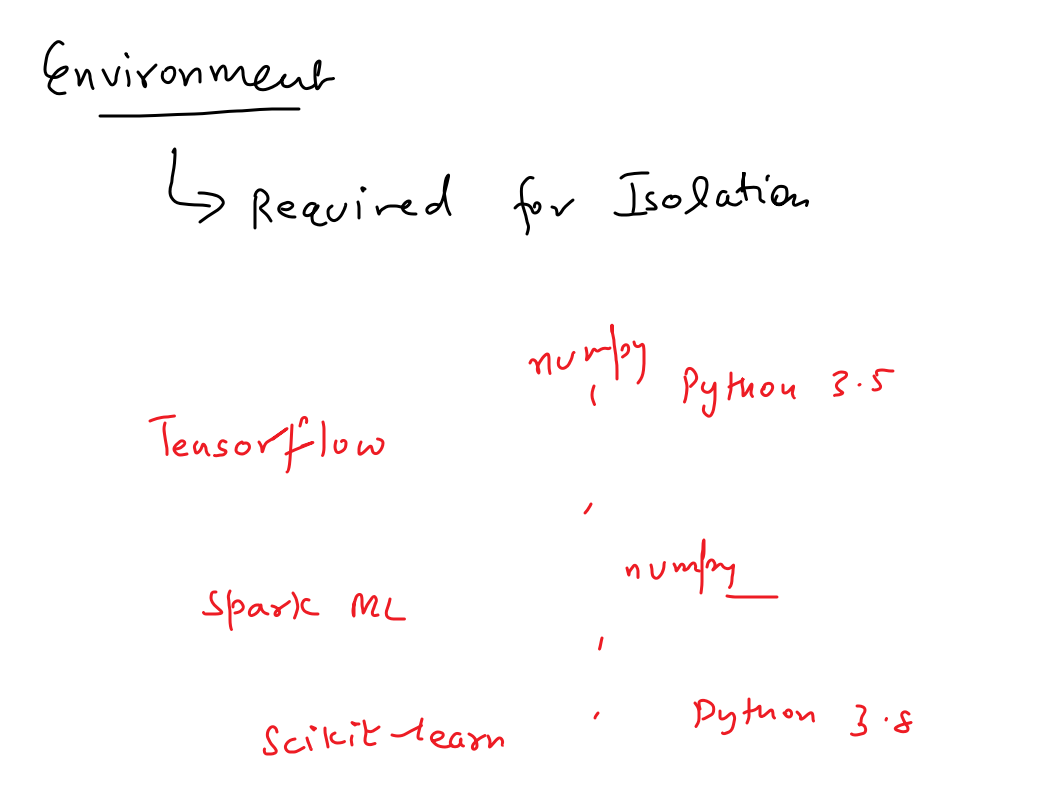 Environment
Required for Isolation
numpy
Python 3.5
Tensorflow
numpy
Spark ML
Python 3.8
Scikit-learn